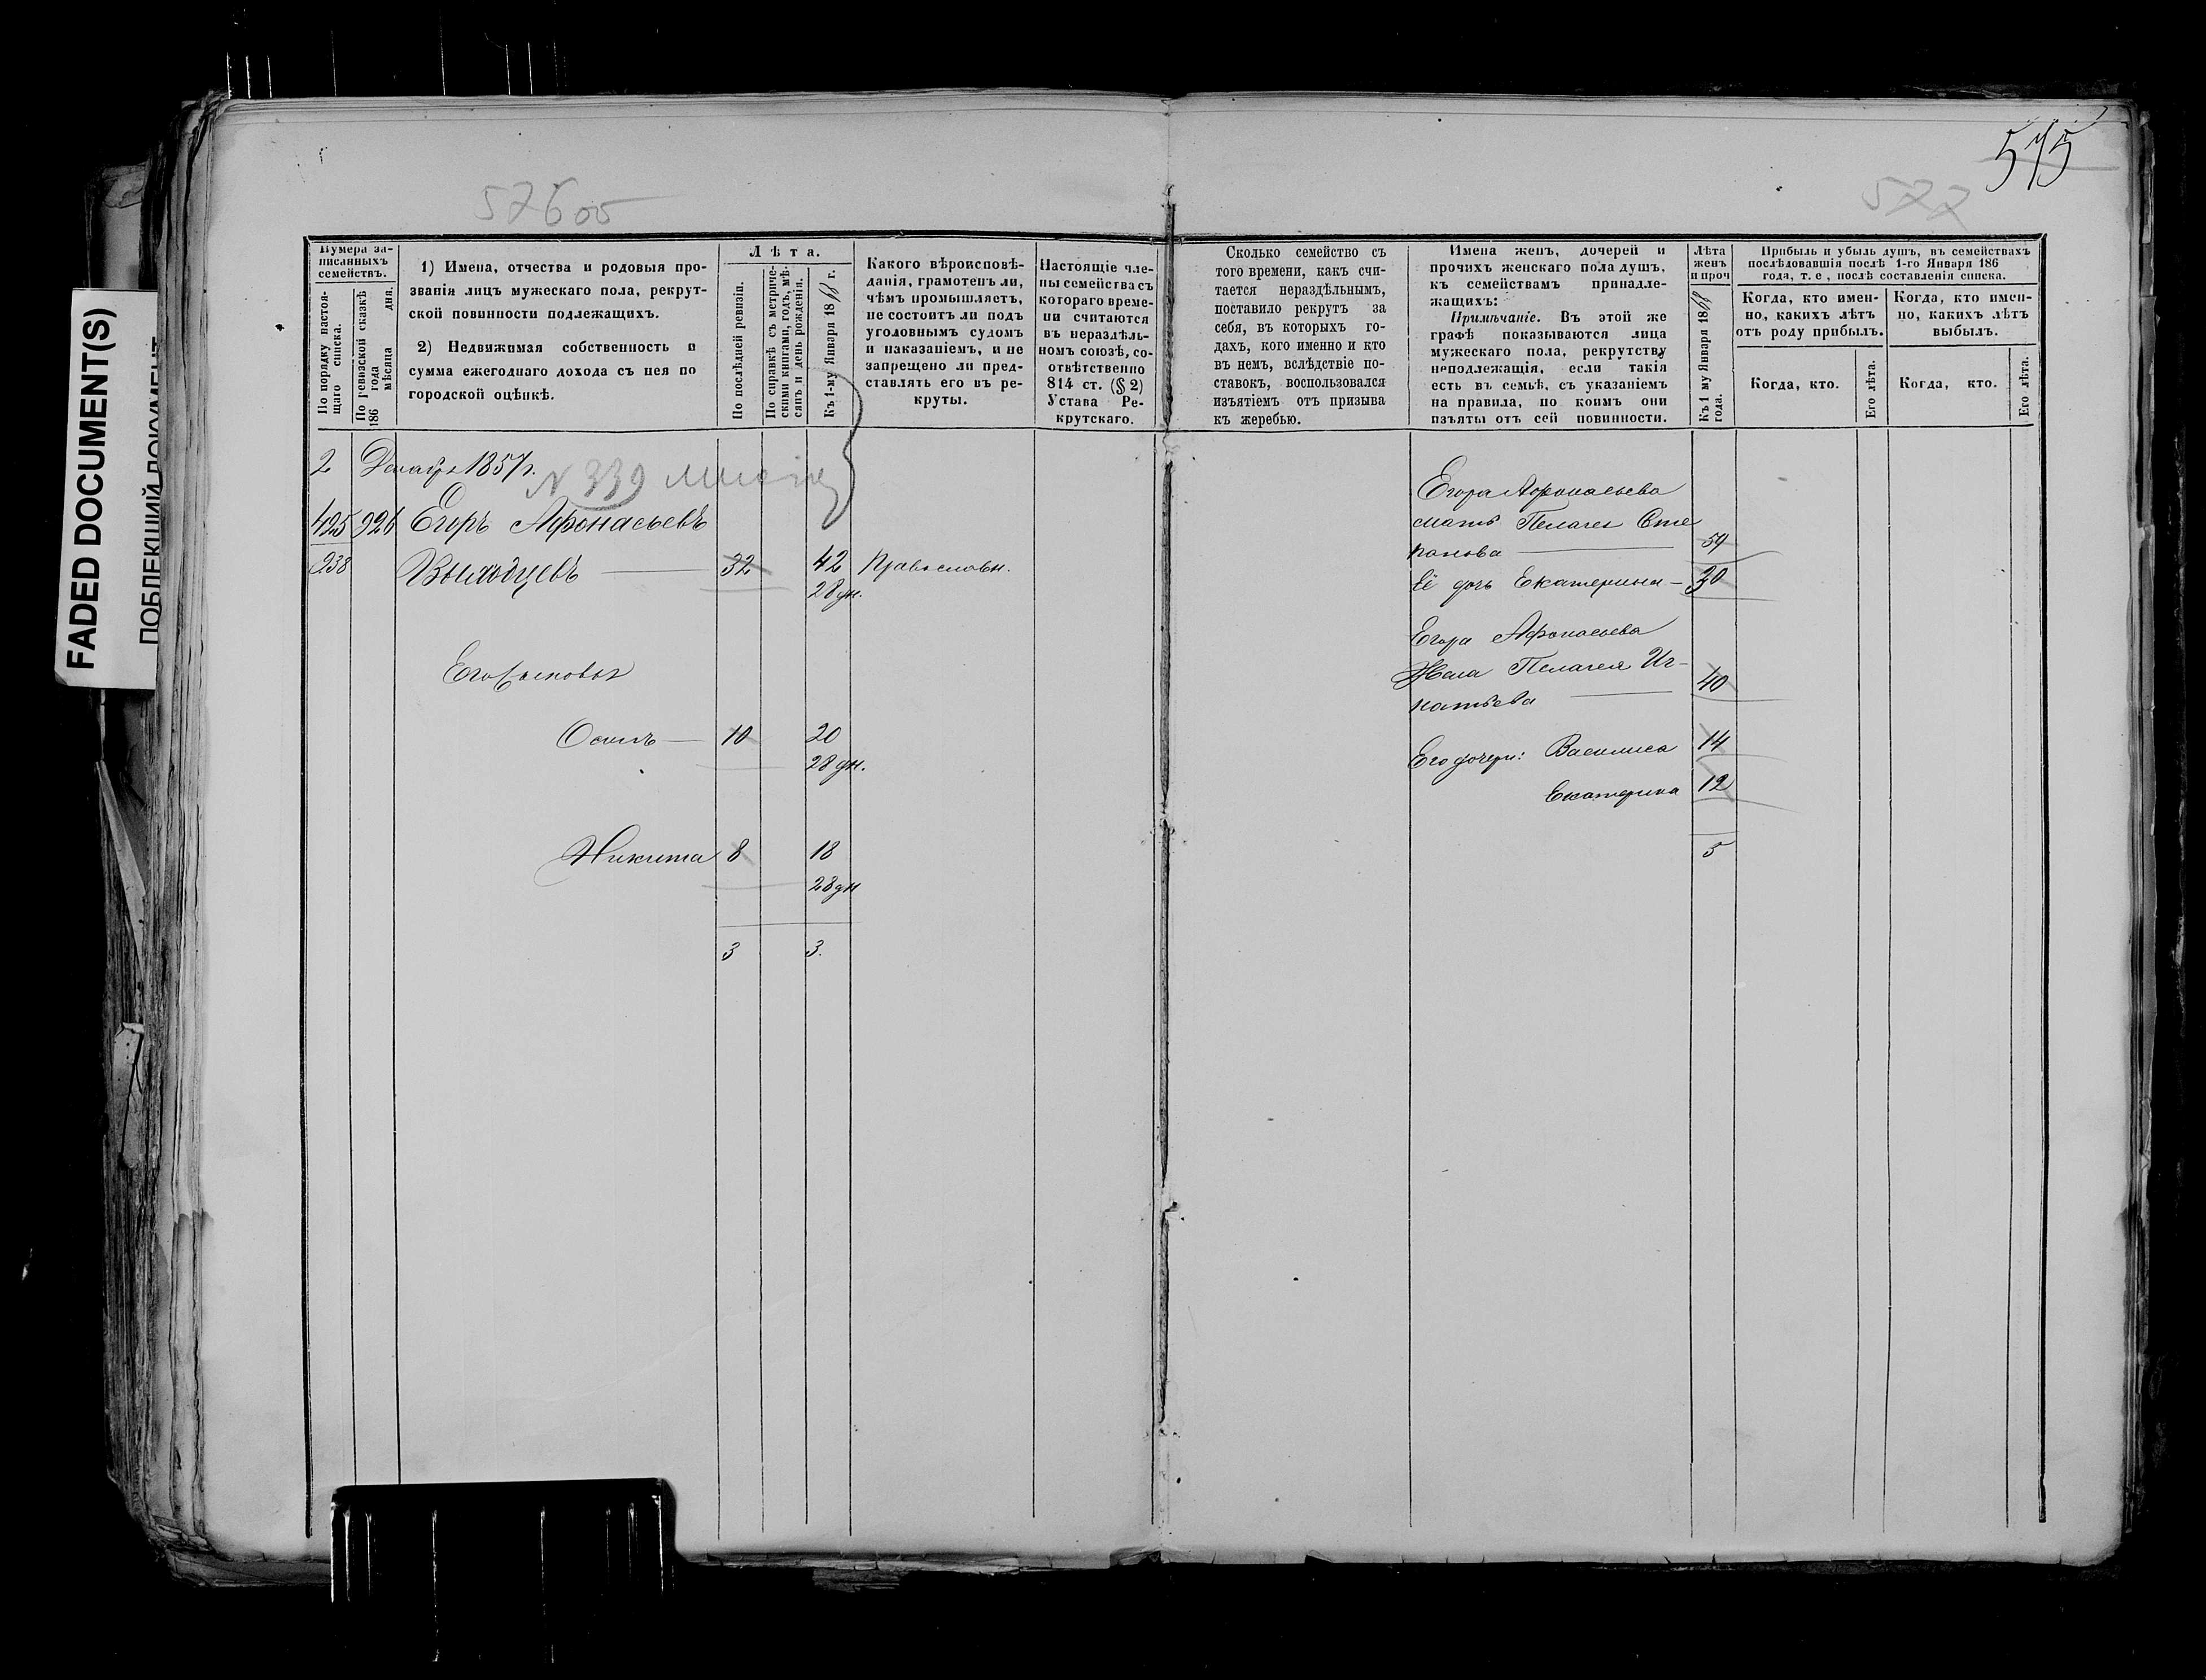 575
576 об
577
FADED DOCUMENT(S)
ПОБЛЕКШИЙ ДОКУМЕНТ
Нумера за-
писанныхъ
семействъ.
По порядку настоя-
щаго списка.
По ревизской сказкѣ
186 года
мѣсяца дня.
1) Имена, отчества и родовыя про-
званія лицъ мужескаго пола, рекрут-
ской повинности подлежащихъ.
2) Недвижимая собственность и
сумма ежегоднаго дохода съ нея по
городской оцѣнкѣ.
Лѣта.
По послѣдней ревизіи.
По справкѣ съ метриче-
скими книгами, годъ, мѣ-
сяцъ и день рожденія.
Къ 1-му Января 1868 г.
Какого вѣроисповѣ-
данія, грамотенъ ли,
чѣмъ промышляетъ,
не состоитъ ли подъ
уголовнымъ судомъ
и наказаніемъ, и не
запрещено ли пред-
ставлять его въ ре-
круты.
Настоящіе чле-
ны семейства съ
котораго време-
ни считаются
въ нераздѣль-
номъ союзѣ, со-
отвѣтственно
814 ст. (§ 2)
Устава Ре-
крутскаго.
Сколько семейство съ
того времени, какъ счи-
тается нераздѣльнымъ,
поставило рекрутъ за
себя, въ которыхъ го-
дахъ, кого именно и кто
въ немъ, вслѣдствіе по-
ставокъ, воспользовался
изъятіемъ отъ призыва
къ жеребью.
Имена женъ, дочерей и
прочихъ женскаго пола душъ,
къ семействамъ принадле-
жащихъ:
Примѣчаніе. Въ этой же
графѣ показываются лица
мужескаго пола, рекрутству
неподлежащія, если такія
есть въ семьѣ, съ указаніемъ
на правила, по коимъ они
изъяты отъ сей повинности.
Лѣта
женъ
и проч
Къ 1 му Января 1868
года.
Прибыль и убыль душъ, въ семействахъ
послѣдовавшія послѣ 1-го Января 186
года, т. е, послѣ составленія списка.
Когда, кто имен-
но, какихъ лѣтъ
отъ роду прибылъ.
Когда, кто имен-
но, какихъ лѣтъ
выбылъ.
Когда, кто.
Его лѣта.
Когда, кто.
Его лѣта.
2 Декабря 1857г.
N 339
425 926 Егоръ Афонасьевъ
238 Выходцевъ 32 42 Православн.
28 дн.
Его Сыновья
Осипъ 10 20
28 дн.
Никита 8 18
28 дн
3 3.
Егора Афонасьева
мать Пелагея Сте
панова 54
Её дочь Екатерина 30
Егора Афонасьева
Жена Пелагея Иг-
натьева 40
Его дочери: Василиса 14
Екатерина 12
5